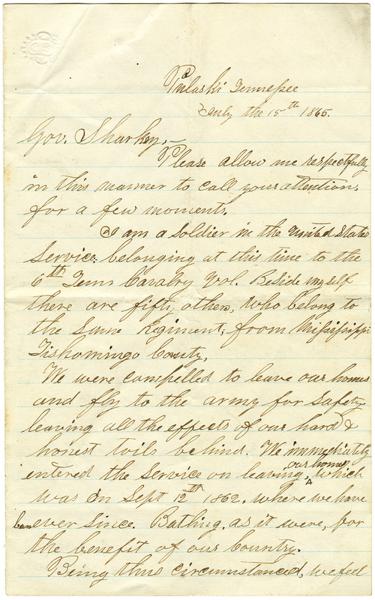 Pulaski Tennessee
July the 15th 1865.
Gov. Sharkey,—
Please allow me respectfully
in this manner to call your attention,
for a few moments.
I am a Soldier in the United States
Service, belonging at this time to the
6th Tenn Cavalry Vol. Beside myself
there are fifty others, who belong to
the Same Regiment, from Mississippi
Tishomingo County,
We were compelled to leave our homes
and fly to the army for Safety
leaving all the effects of our hard &
honest toils behind. We immediately
entered the Service on leaving our homes, which
was on Sept 12th 1862. where we have
been ever since. Batling, as it were, for
the benefit of our Country.
Being thus circumstanced, we feel